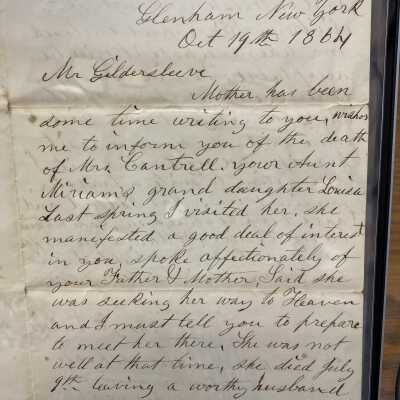 Glenham New York
Oct 19th 1864
Mr Gildersleeve
Mother has been
some time writing to you, wishes
me to inform you of the death
of Mrs. Cantrell. your Aunt
Miriams grand daughter Louisa
Last spring I visited her, she
manifested a good deal of interest
in you, spoke affectionately of
your Father & Mother, Said she
was seeking her way to Heaven
and I must tell you to prepare
to meet her there, She was not
well at that time, she died July
9th leaving a worthy husband